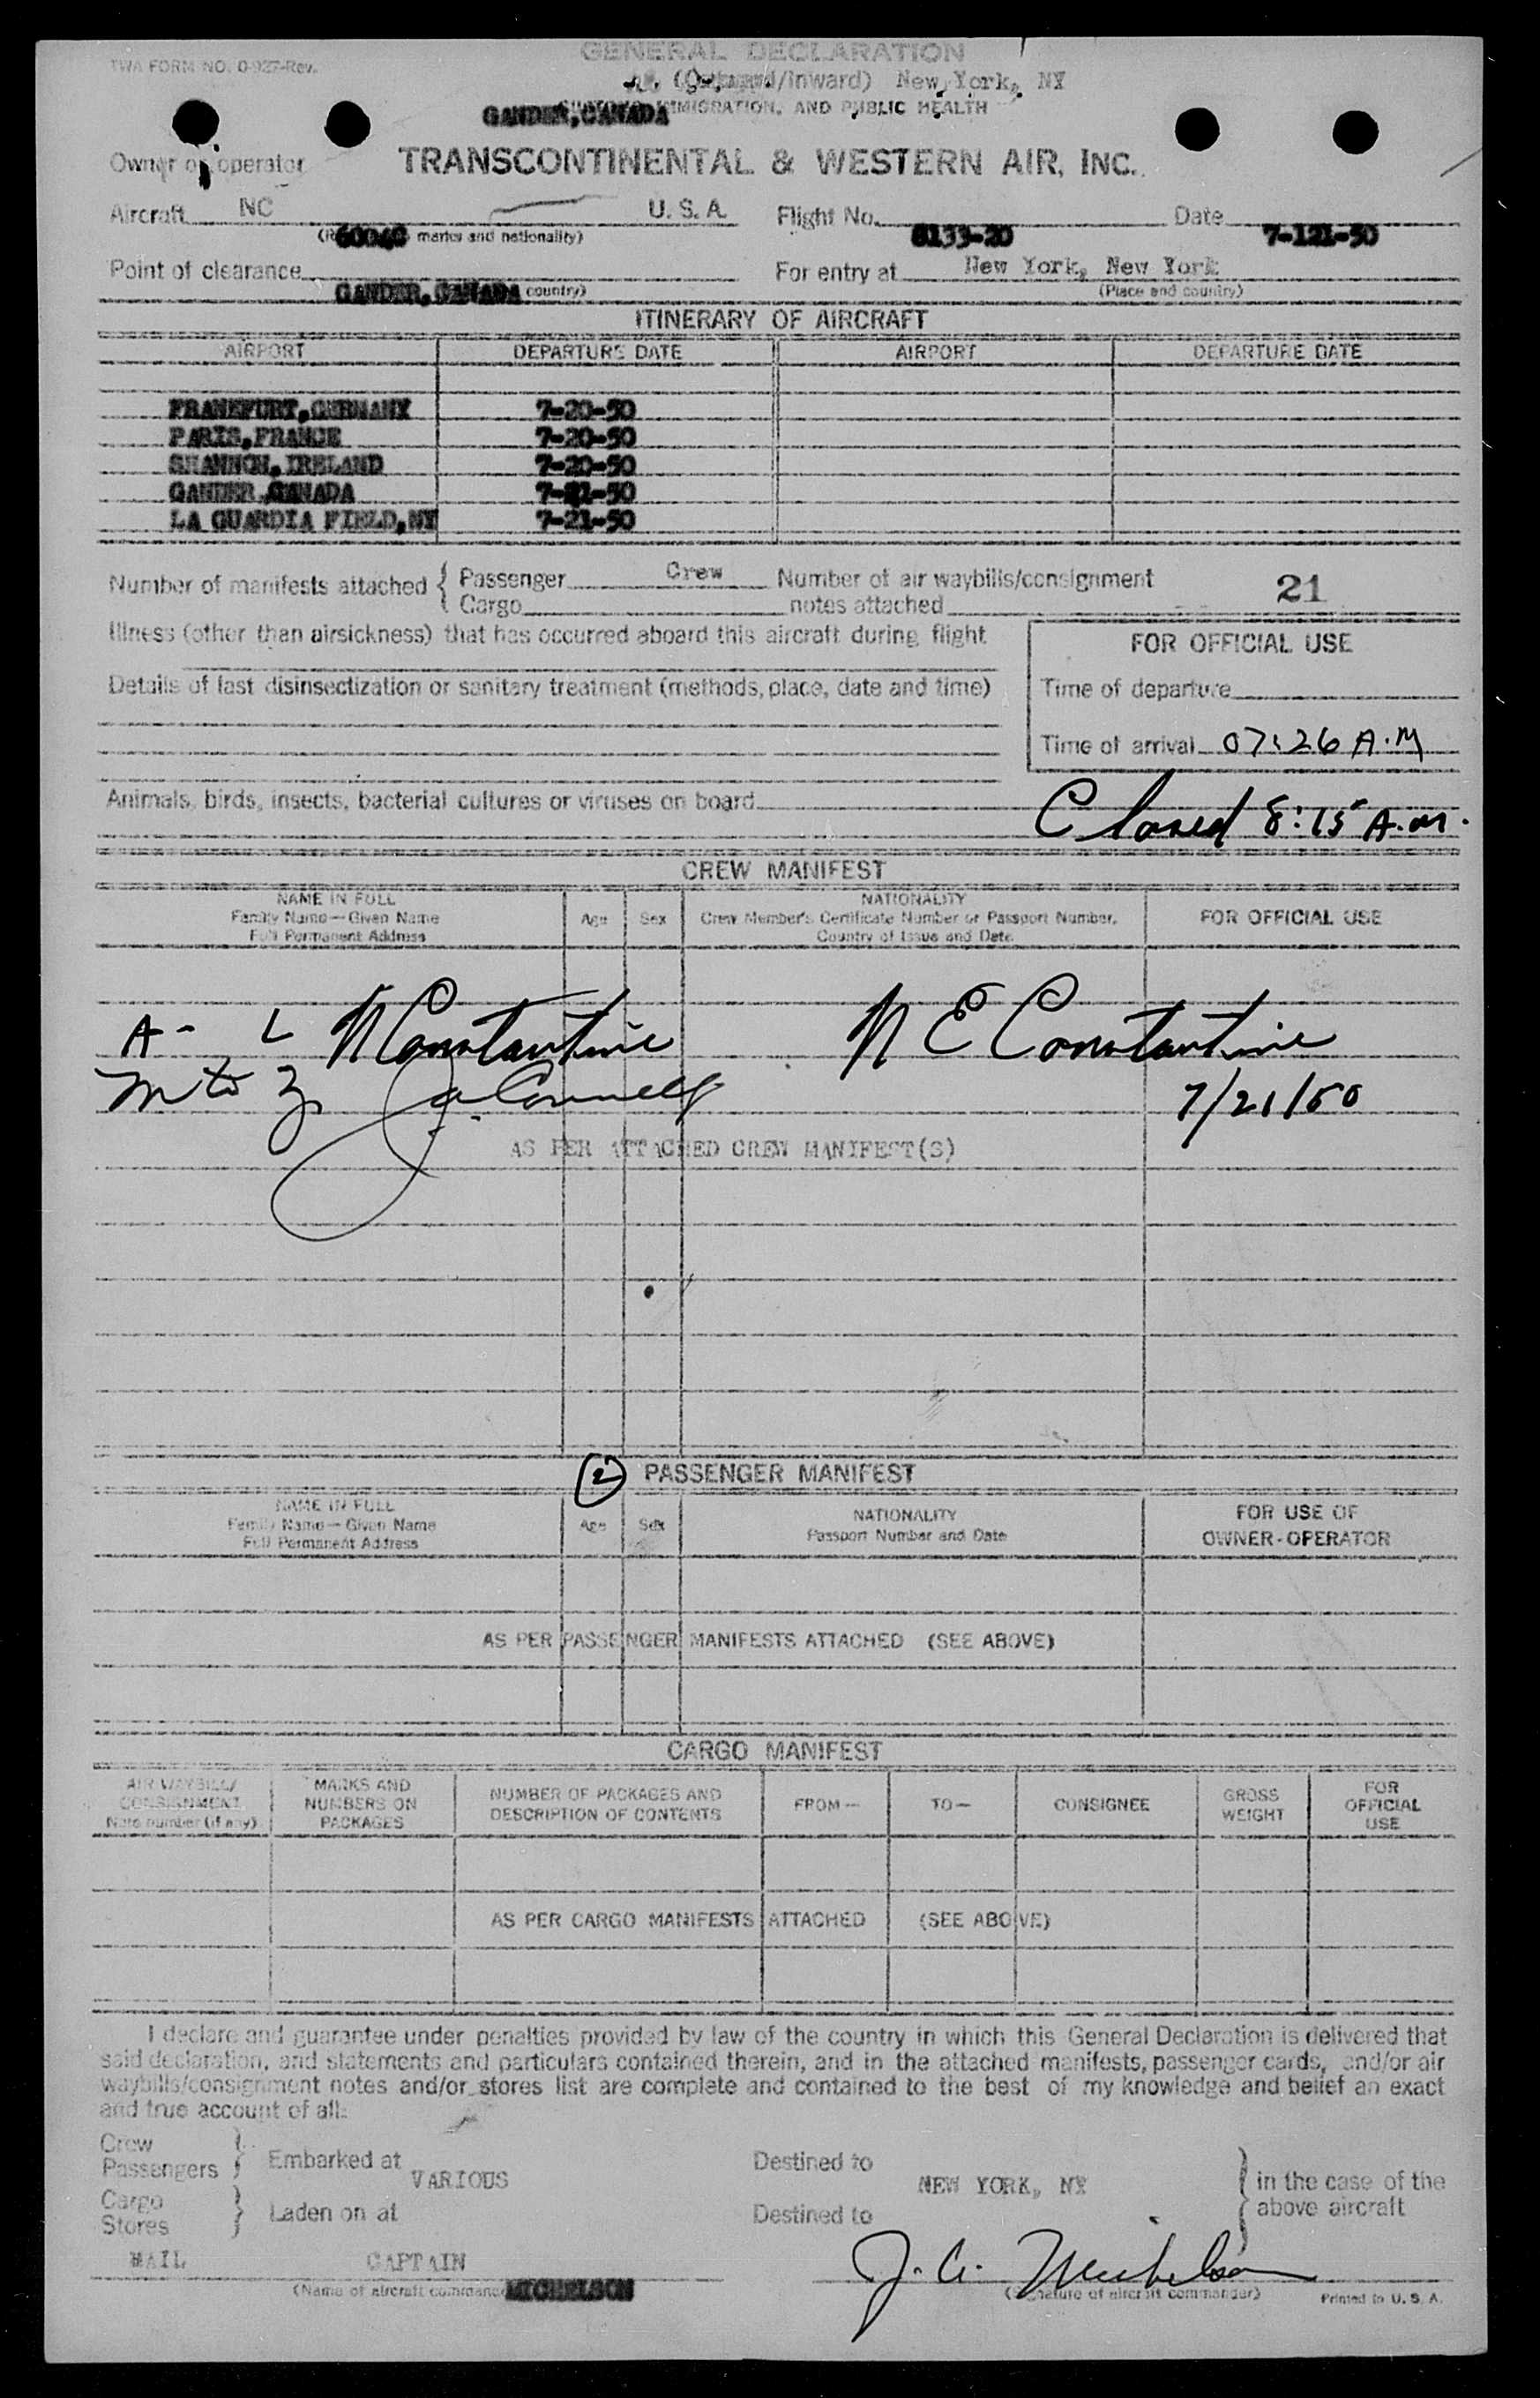 GENERAL DECLARATION
TWA FORM NO. 0-927-Rev.
(Outward/Inward) New York, NY
GANDER, CANADA IMMIGRATION, AND PUBLIC HEALTH
Owner or operator TRANSCONTINENTAL & WESTERN AIR, INC.
Aircraft NC U. S. A. Flight No. Date
marks and nationality) 8133-20 7-121-50
Point of clearance For entry at New York, New York
GANDER, CANADA country) (Place and country)
ITINERARY OF AIRCRAFT
AIRPORT DEPARTURE DATE AIRPORT DEPARTURE DATE
FRANKFURT, GERMANY 7-20-50
PARIS, FRANCE 7-20-50
SHANNON, IRELAND 7-20-50
GANDER, CANADA 7-21-50
LA GUARDIA FIELD, NY 7-21-50
Number of manifests attached { Passenger Crew Number of air waybills/consignment 21
Cargo notes attached
Illness (other than airsickness) that has occurred aboard this aircraft during flight
FOR OFFICIAL USE
Details of last disinsectization or sanitary treatment (methods, place, date and time)
Time of departure
Time of arrival 07:26 A.M
Animals, birds, insects, bacterial cultures or viruses on board
Closed 8:15 A.M.
CREW MANIFEST
NAME IN FULL NATIONALITY
Family Name—Given Name Age Sex Crew Member's Certificate Number or Passport Number, FOR OFFICIAL USE
Full Permanent Address Country of Issue and Date
A - L N Constantine N E Constantine
M to Z 7/21/50
AS PER ATTACHED CREW MANIFEST(S)
2 PASSENGER MANIFEST
NAME IN FULL NATIONALITY FOR USE OF
Family Name—Given Name Age Sex Passport Number and Date OWNER-OPERATOR
Full Permanent Address
AS PER PASSENGER MANIFESTS ATTACHED (SEE ABOVE)
CARGO MANIFEST
AIR WAYBILL/ MARKS AND NUMBER OF PACKAGES AND FROM— TO— CONSIGNEE GROSS FOR
CONSIGNMENT NUMBERS ON DESCRIPTION OF CONTENTS WEIGHT OFFICIAL
Note number (if any) PACKAGES USE
AS PER CARGO MANIFESTS ATTACHED (SEE ABOVE)
I declare and guarantee under penalties provided by law of the country in which this General Declaration is delivered that
said declaration, and statements and particulars contained therein, and in the attached manifests, passenger cards, and/or air
waybills/consignment notes and/or stores list are complete and contained to the best of my knowledge and belief an exact
and true account of all:
Crew
Passengers } Embarked at VARIOUS Destined to NEW YORK, NY } in the case of the
Cargo
Stores } Laden on at Destined to above aircraft
MAIL CAPTAIN J. A. Michelson
(Name of aircraft commander MICHELSON (Signature of aircraft commander) Printed in U. S. A.